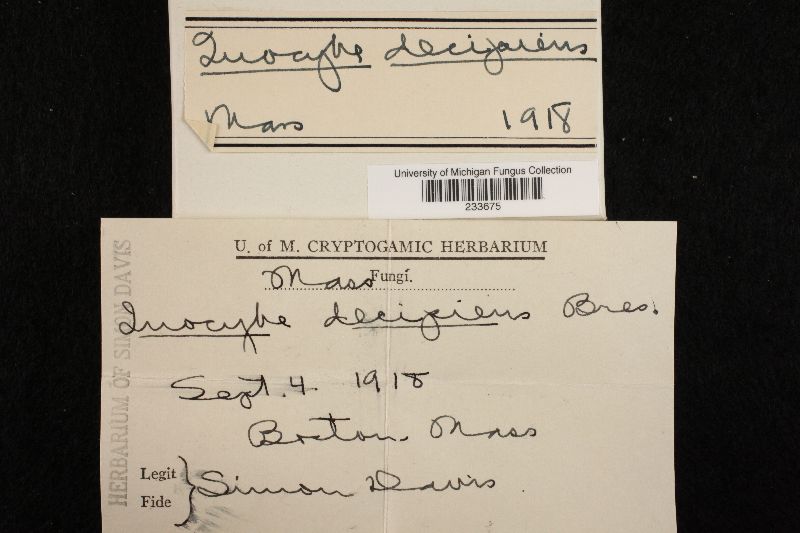 Inocybe decipiens
Mass 1918
University of Michigan Fungus Collection
233675
U. of M. CRYPTOGAMIC HERBARIUM
Mass Fungi.
Inocybe decipiens Bres.
Sept. 4 1918
Boston. Mass
Legit
Fide
Simon Davis
HERBARIUM OF SIMON DAVIS